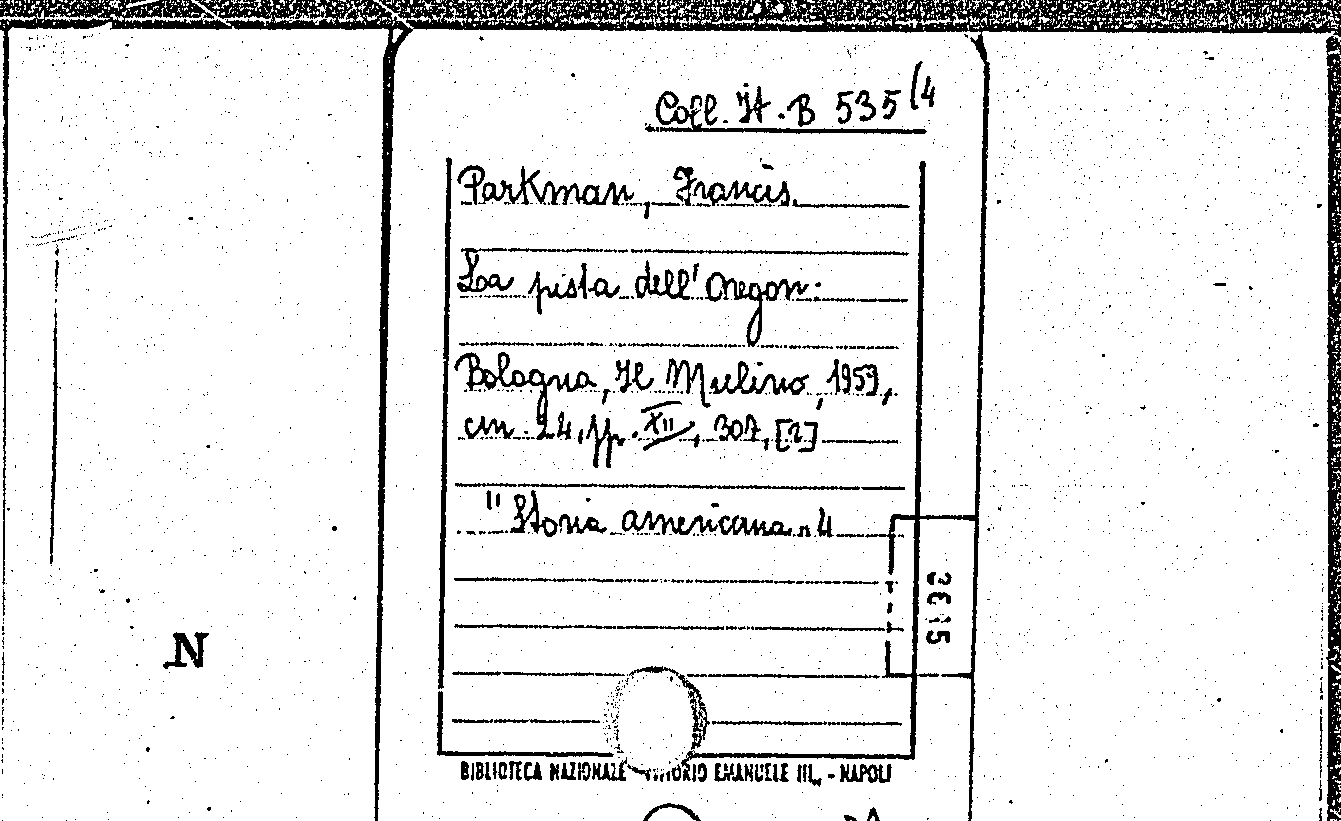 Coll. It. B 535 (4
Parkman, Francis.
La pista dell'Oregon:
Bologna, Il Mulino, 1959,
cm. 24, pp. XII, 307, [2]
"Storia americana" 4
N
BIBLIOTECA NAZIONALE VITTORIO EMANUELE III" - NAPOLI